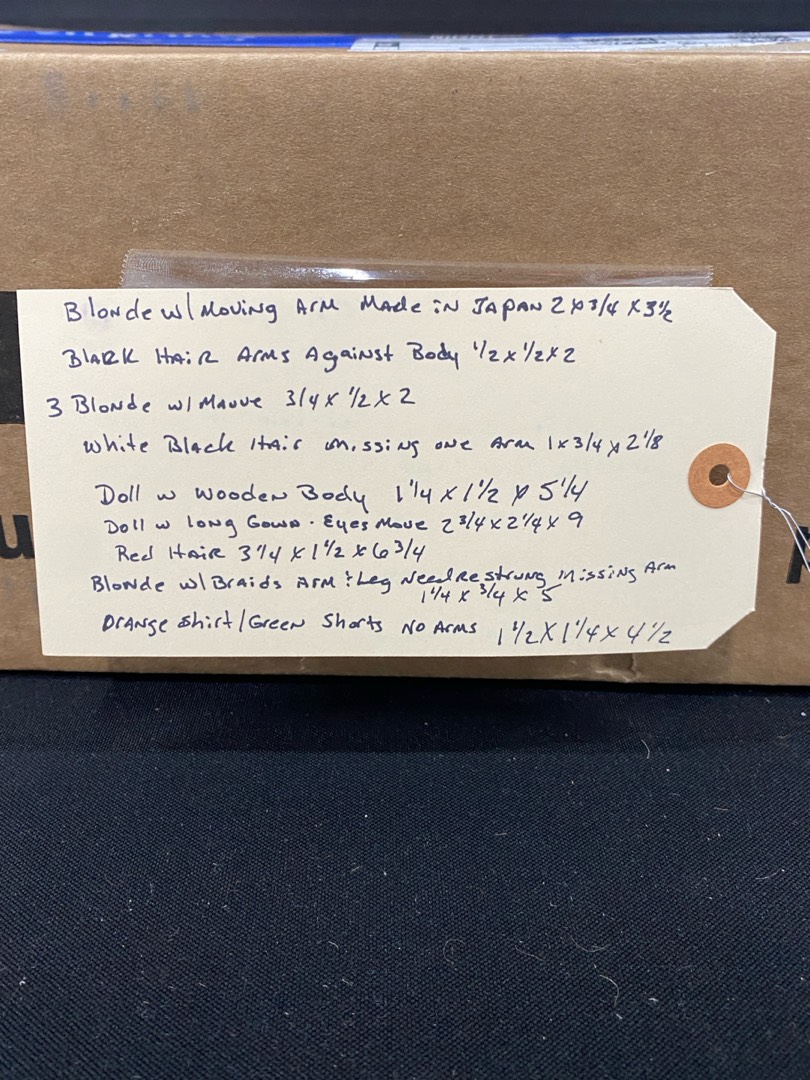 Blonde w/ Moving Arm Made in Japan 2 x 3/4 x 3 1/2
Black Hair Arms Against Body 1/2 x 1/2 x 2
3 Blonde w/ Mauve 3/4 x 1/2 x 2
White Black Hair missing one Arm 1 x 3/4 x 2 1/8
Doll w Wooden Body 1 1/4 x 1 1/2 x 5 1/4
Doll w Long Gown. Eyes Move 2 3/4 x 2 1/4 x 9
Red Hair 3 1/4 x 1 1/2 x 6 3/4
Blonde w/ Braids Arm & Leg Need Restrung Missing Arm
1 1/4 x 3/4 x 5
Orange Shirt/Green Shorts No Arms 1 1/2 x 1 1/4 x 4 1/2